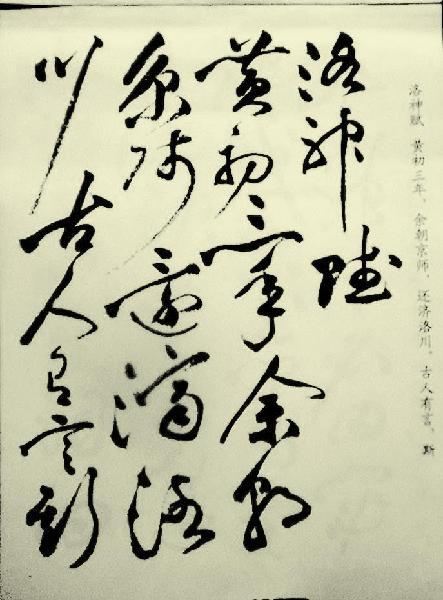 洛神赋 黄初三年，余朝京师，还济洛川。古人有言，斯
洛神賦
黄初三年余朝
京師還濟洛
川古人有言斯